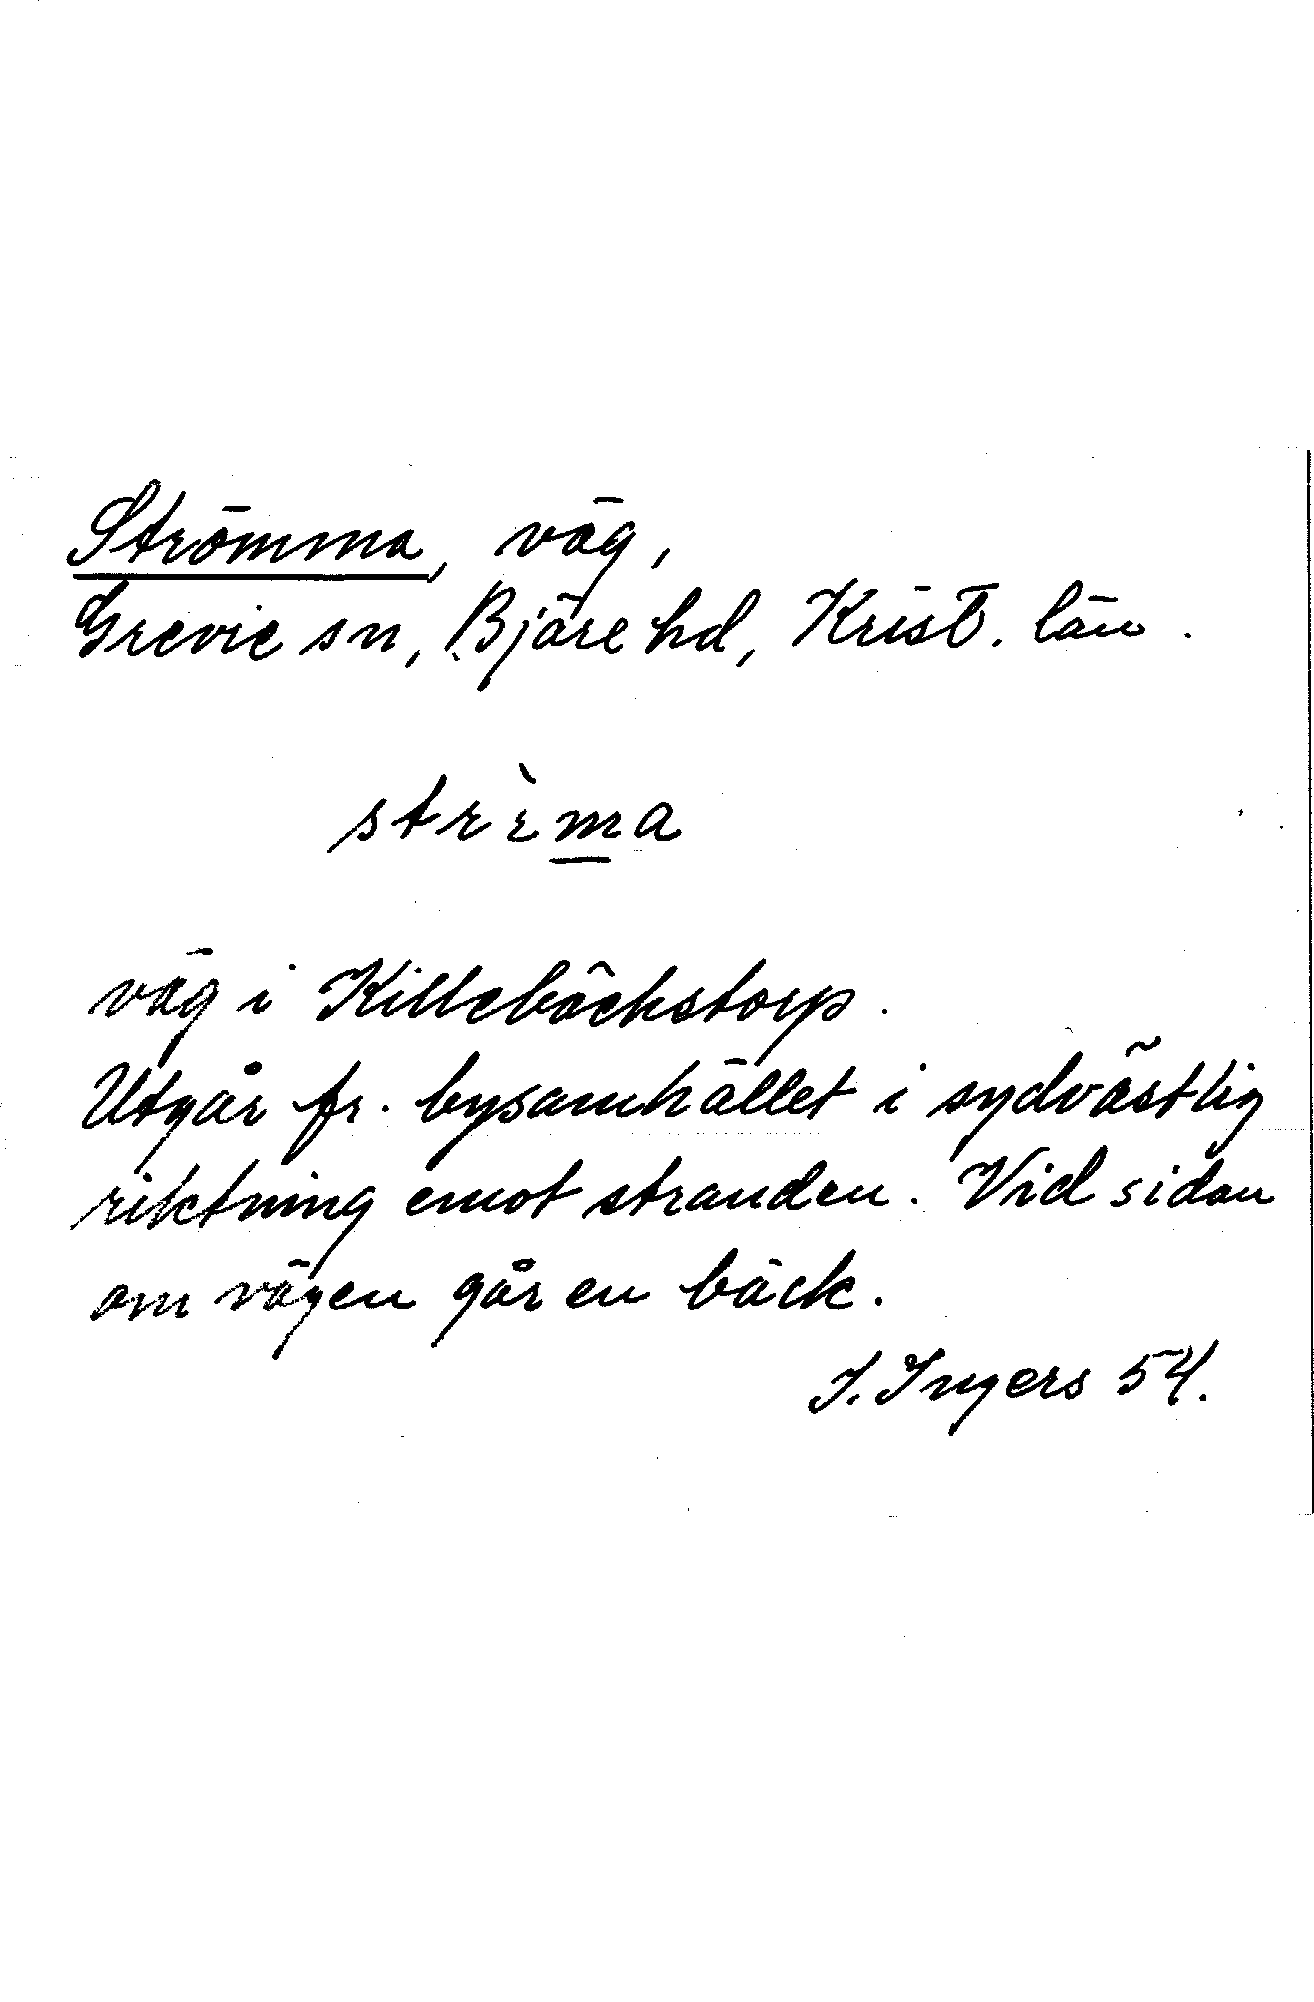 Strömma, väg,
Grevie sn, Bjäre hd, Krist. län.
väg i Killebäckstorp.
Utgår fr. bysamhället i sydvästlig
riktning emot stranden. Vid sidan
om vägen går en bäck.
I. Ingers 54.